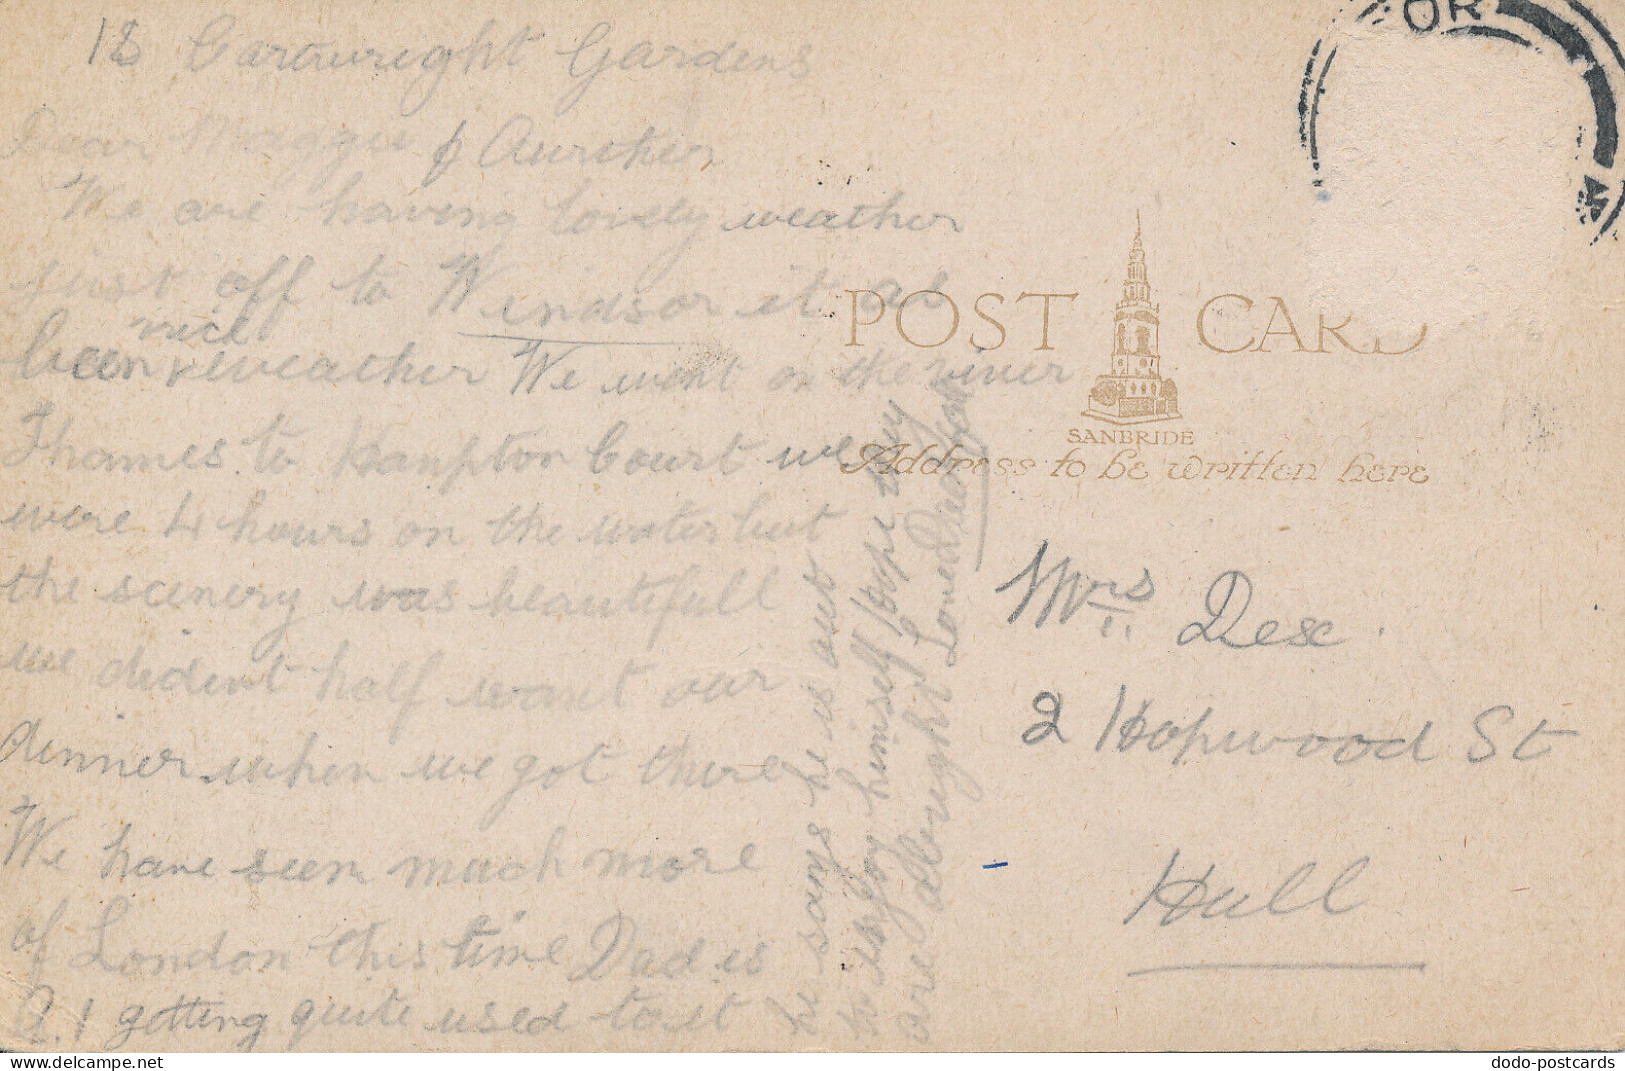 18 Cartwright Gardens
Dear Maggie & Aurther
We are having lovely weather
just off to Windsor it as
nice
been weather We went on the river
Thames to Hampton Court we
were 4 hours on the water but
the scenery was beautifull
we dident half want our
dinner when we got there
We have seen much more
of London this time Dad is
A.1 getting quite used to it
he says he is out
to enjoy himself hope you
are allright Love
POST CARD
SANBRIDE
Address to be written here
Mrs Dex
2 Hopwood St
Hull
OR
dodo-postcards